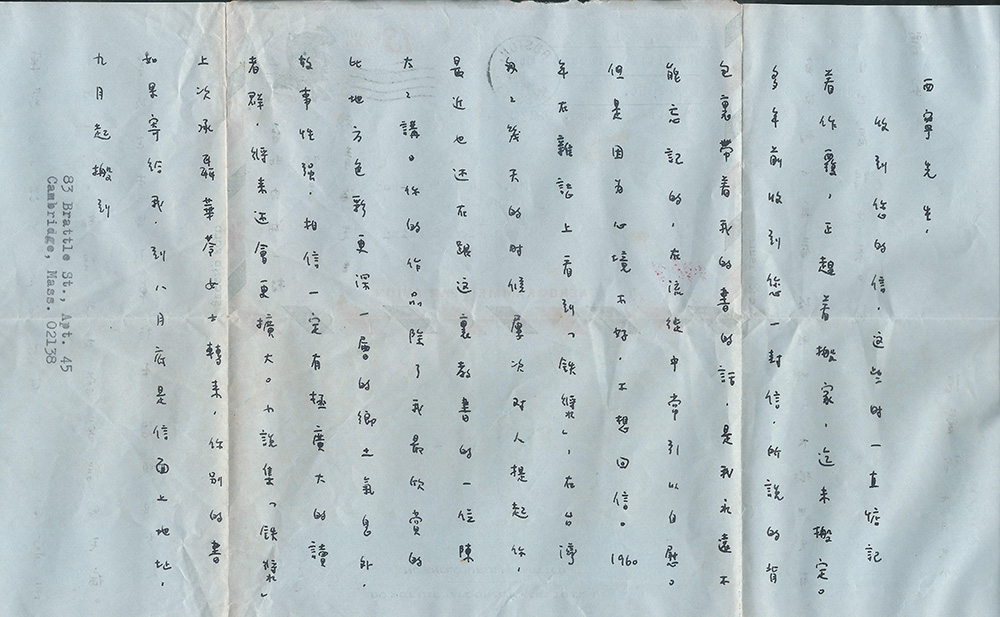 西寧先生，
收到您的信，這些时一直惦記
着作覆，正趕着搬家，迄未搬定。
多年前收到您一封信，所説的背
包裏帶着我的書的話，是我永遠不
能忘記的，在流徙中常引以自慰。
但是因为心境不好，不想回信。1960
年在雜誌上看到「鉄漿」，在台湾
幾天的时候屢次对人提起你，
最近也还在跟这裏教書的一位陳
太太講。你的作品除了我最欣賞的
此地方色彩更深一層的鄉土氣息外，
故事性强，相信一定有極廣大的讀
者群，將来还會更擴大。小説集「鉄漿」
上次承聶華苓女士轉来，你别的書
如果寄給我，到八月底是信面上地址，
九月起搬到
83 Brattle St., Apt. 45
Cambridge, Mass. 02138